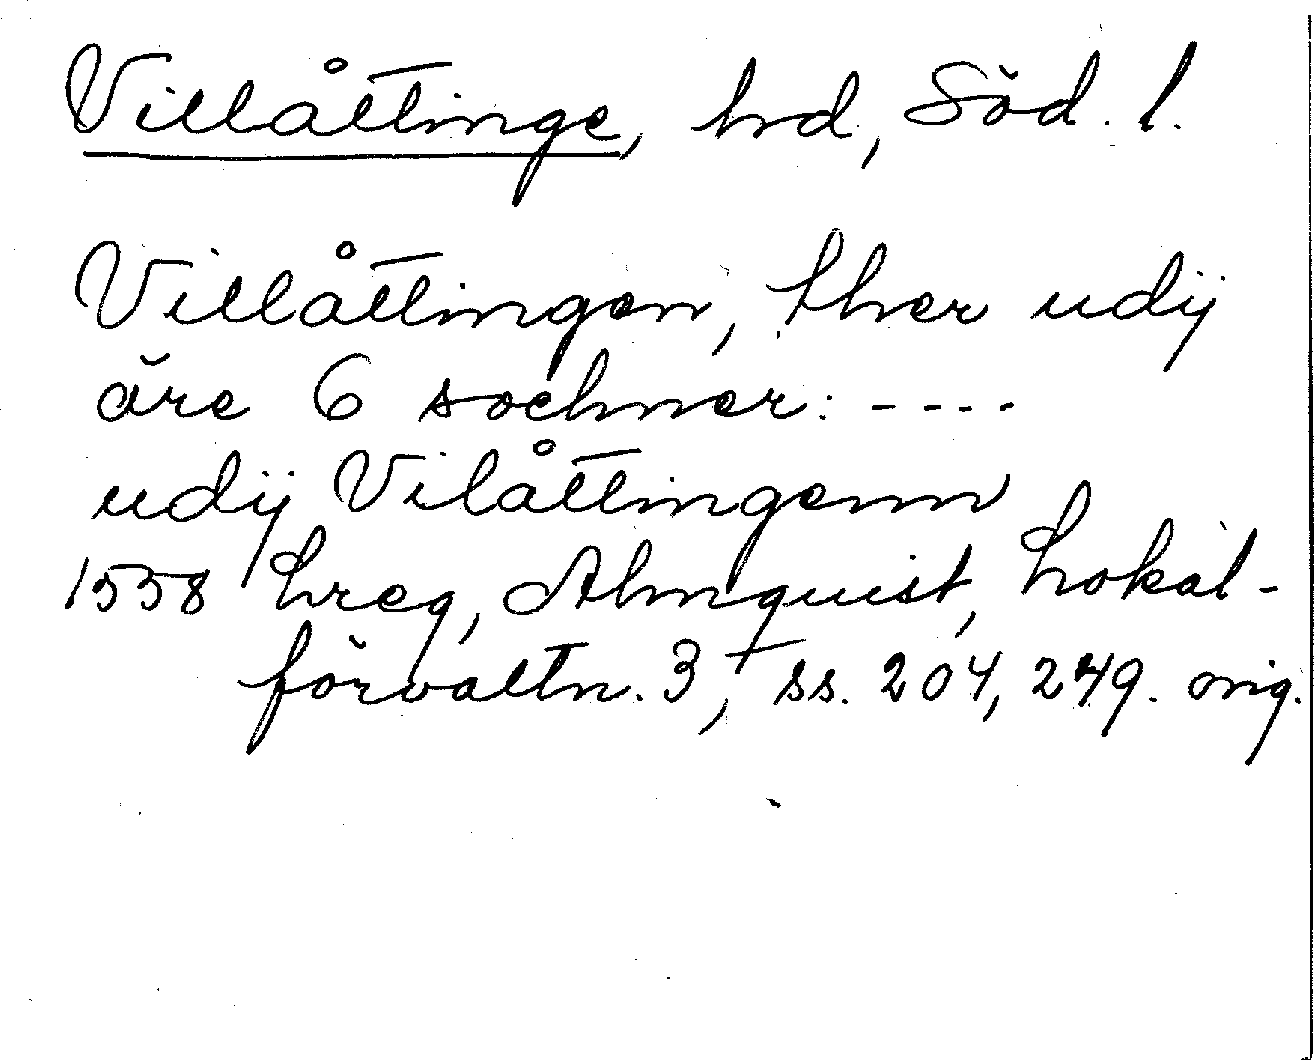 Villåttinge, hrd, Söd. l.
Villåttingen, ther udij
äre 6 sochner: ----
udij Vilåttingenn
1558 Lreg, Almquist, Lokal-
förvaltn. 3, ss. 204, 249. orig.